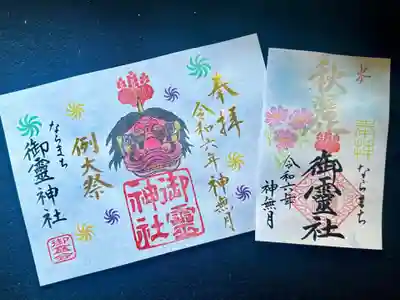 奉拝
令和六年 神無月
例大祭
御靈神社
ならまち
御靈神社
奉拝
ならまち
御靈社
令和六年
神無月